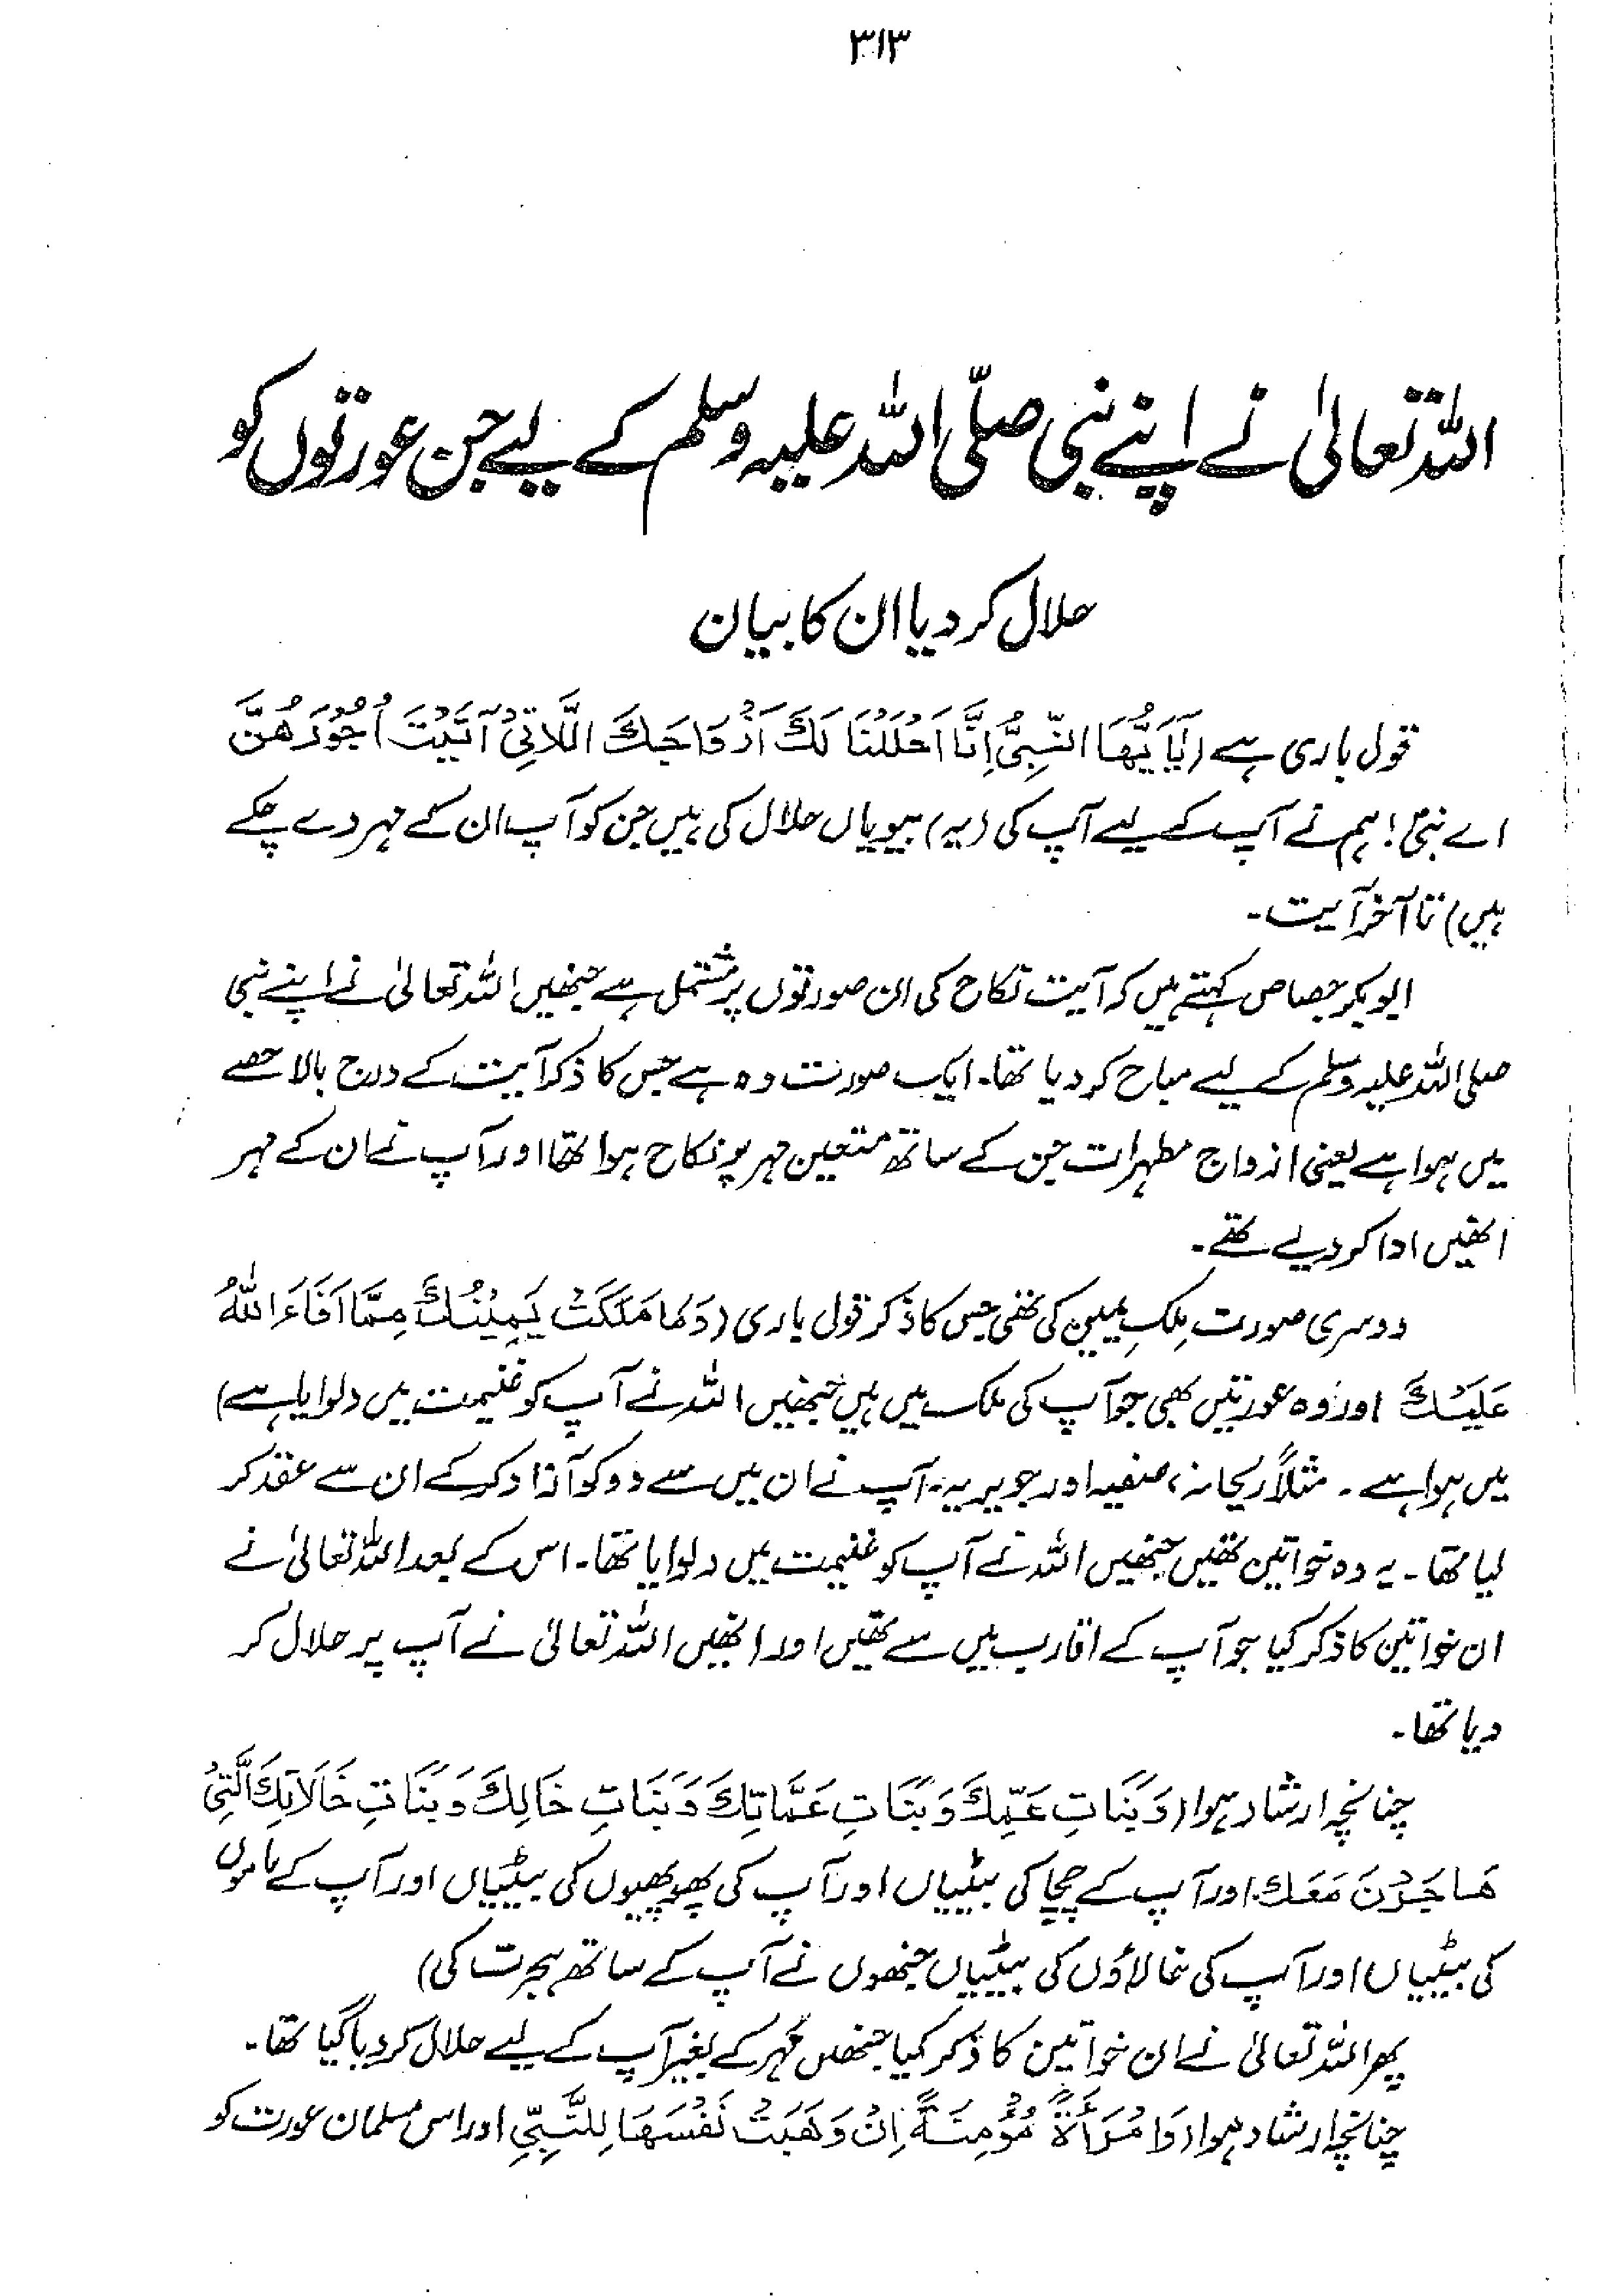 ۳۱۳
اللہ تعالیٰ نے اپنے نبی صلّی اللہ علیہ وسلم کے لیے جن عورتوں کو
حلال کر دیا ان کا بیان
قول باری ہے (یٰٓاَیُّهَا النَّبِیُّ اِنَّا اَحْلَلْنَا لَكَ اَزْوَاجَكَ اللَّاتِیْ آتَیْتَ اُجُوْرَهُنَّ
اے نبیؐ! ہم نے آپ کے لیے آپ کی (یہ) بیویاں حلال کی ہیں جن کو آپ ان کے مہر دے چکے
ہیں) تا آخر آیت۔
ابوبکر جصاص کہتے ہیں کہ آیت نکاح کی ان صورتوں پر مشتمل ہے جنھیں اللہ تعالیٰ نے اپنے نبی
صلی اللہ علیہ وسلم کے لیے مباح کر دیا تھا۔ ایک صورت وہ ہے جس کا ذکر آیت کے درج بالا حصے
میں ہوا ہے یعنی ازواج مطہرات جن کے ساتھ متعین مہر پر نکاح ہوا تھا اور آپ نے ان کے مہر
انھیں ادا کر دیے تھے۔
دوسری صورت مِلکِ یمین کی تھی جس کا ذکر قول باری (وَمَا مَلَكَتْ یَمِیْنُكَ مِمَّا اَفَاءَ اللّٰهُ
عَلَیْكَ اور وہ عورتیں بھی جو آپ کی ملک میں ہیں جنھیں اللہ نے آپ کو غنیمت میں دلوایا ہے)
میں ہوا ہے۔ مثلاً ریحانہ، صفیہ اور جویریہ۔ آپ نے ان میں سے دو کو آزاد کر کے ان سے عقد کر
لیا تھا۔ یہ وہ خواتین تھیں جنھیں اللہ نے آپ کو غنیمت میں دلوایا تھا۔ اس کے بعد اللہ تعالیٰ نے
ان خواتین کا ذکر کیا جو آپ کے اقارب میں سے تھیں اور انھیں اللہ تعالیٰ نے آپ پر حلال کر
دیا تھا۔
چنانچہ ارشاد ہوا (وَبَنَاتِ عَمِّكَ وَبَنَاتِ عَمَّاتِكَ وَبَنَاتِ خَالِكَ وَبَنَاتِ خَالَاتِكَ الّٰتِیْ
هَاجَرْنَ مَعَكَ اور آپ کے چچا کی بیٹیاں اور آپ کی پھوپھیوں کی بیٹیاں اور آپ کے ماموں
کی بیٹیاں اور آپ کی خالاؤں کی بیٹیاں جنھوں نے آپ کے ساتھ ہجرت کی)
پھر اللہ تعالیٰ نے ان خواتین کا ذکر کیا جنھیں مہر کے بغیر آپ کے لیے حلال کر دیا گیا تھا۔
چنانچہ ارشاد ہوا (وَامْرَأَةً مُّؤْمِنَةً اِنْ وَهَبَتْ نَفْسَهَا لِلنَّبِیِّ اور اس مسلمان عورت کو